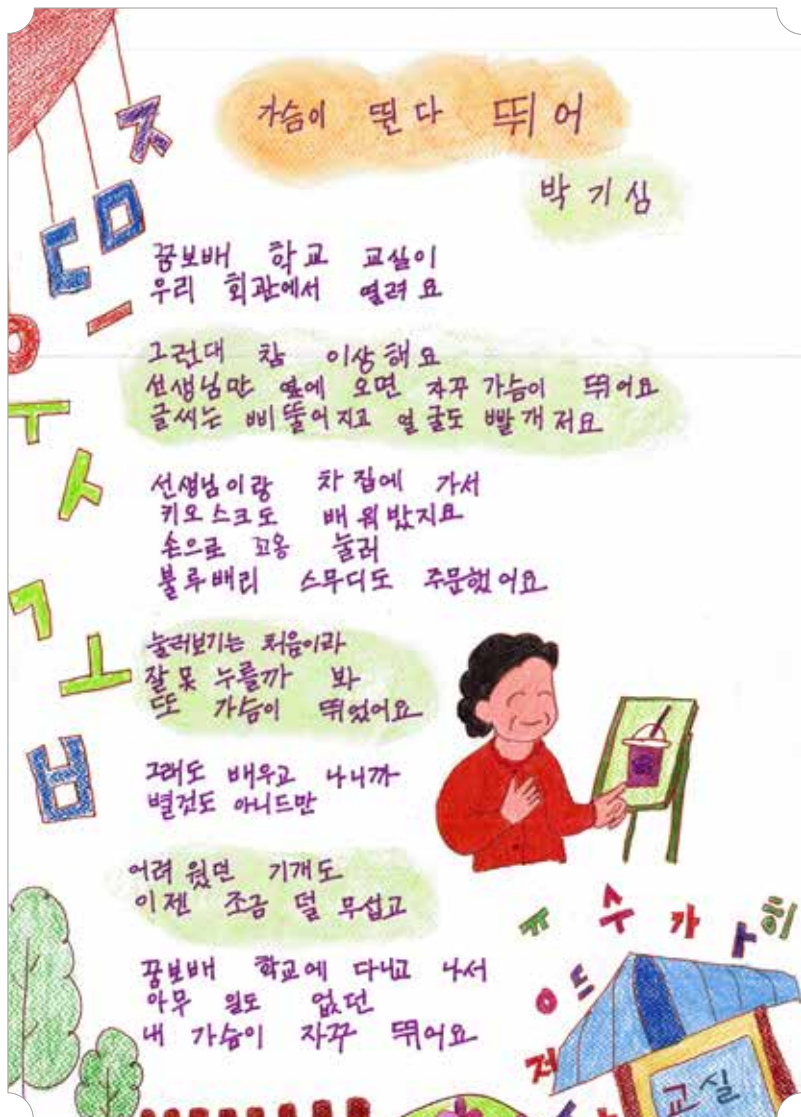 가슴이 뛴다 뛰어
박기심
꿈보배 학교 교실이
우리 회관에서 열려요
그런대 참 이상해요
선생님만 옆에 오면 자꾸 가슴이 뛰어요
글씨는 삐뚤어지고 얼굴도 빨개저요
선생님이랑 차집에 가서
키오스크도 배워밨지요
손으로 꼬옹 눌러
불루배리 스무디도 주문했어요
눌러보기는 처음이라
잘못 누를까 봐
또 가슴이 뛰었어요
그래도 배우고 나니까
별것도 아니드만
어려웠던 기개도
이젠 조금 덜 무섭고
꿈보배 학교에 다니고 나서
아무 일도 없던
내 가슴이 자꾸 뛰어요
교실